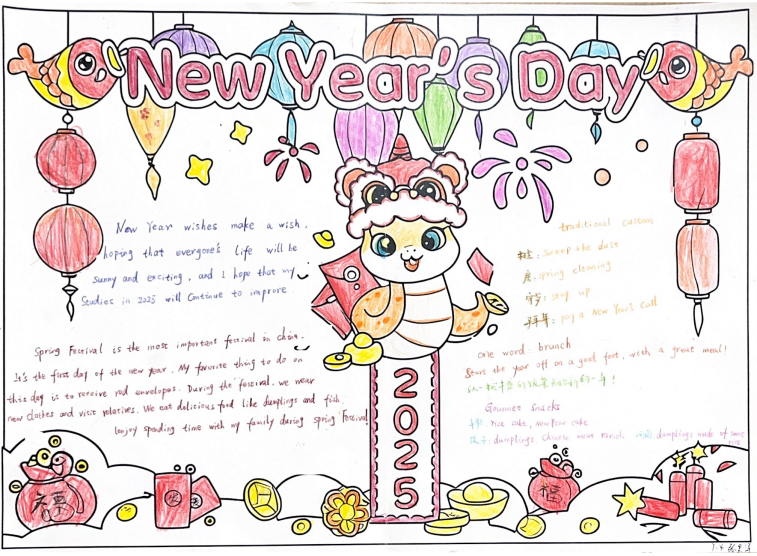 New Year's Day
New Year wishes make a wish,
hoping that everyone's life will be
sunny and exciting, and I hope that my
Studies in 2025 will continue to improve.
Spring Festival is the most important festival in china.
It's the first day of the new year. My favorite thing to do on
this day is to receive red envelopes. During the festival, we wear
new clothes and visit relatives. We eat delicious food like dumplings and fish.
I enjoy spending time with my family during spring Festival
2025
traditional custom
: sweep the dust
: spring cleaning
守岁: stay up
拜年: pay a New Year's Call
One word: brunch
Start the year off on a good foot, with a great meal!
Gourmet snacks
年糕: rice cake, new year cake
饺子: dumplings Chinese meat ravioli dumplings made of
rice
福